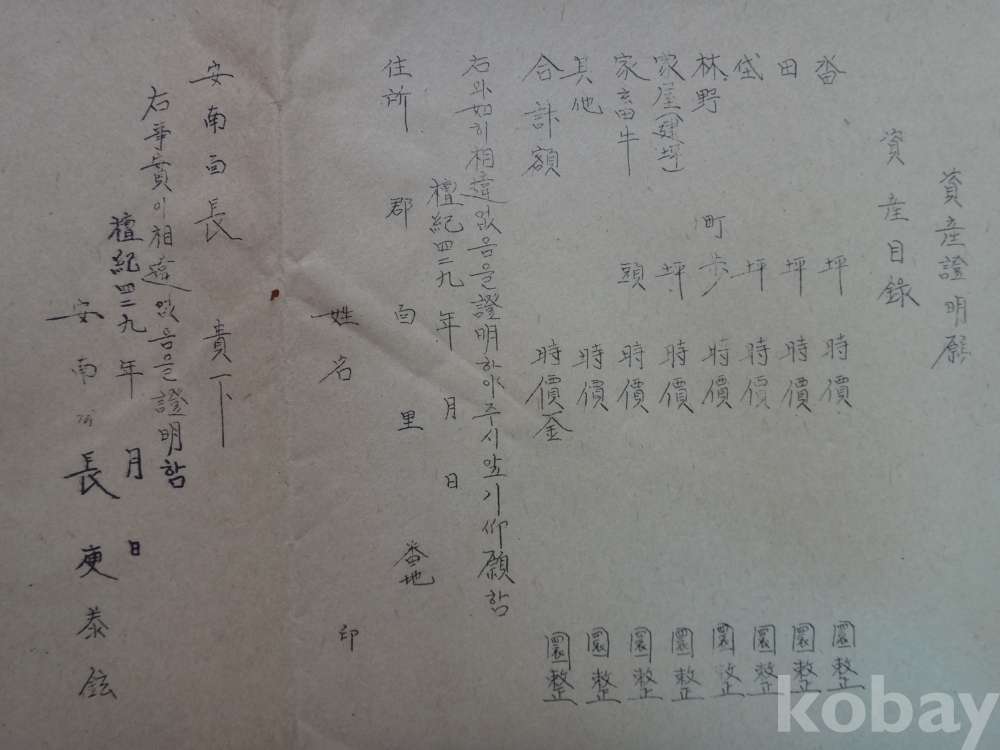 資産證明願
資産目錄
畓 坪 時價 圜整
田 坪 時價 圜整
垈 坪 時價 圜整
林野 町步 時價 圜整
家屋(建坪) 坪 時價 圜整
家畜牛 頭 時價 圜整
其他 時價 圜整
合計額 時價金 圜整
右와如히相違없음을證明하야주시앞기仰願함
檀紀四二九 年 月 日
住所 郡 面 里 番地
姓名 印
安南面長 貴下
右事實이相違없음을證明함
檀紀四二九 年 月 日
安南面長 庾泰鉉
kobay